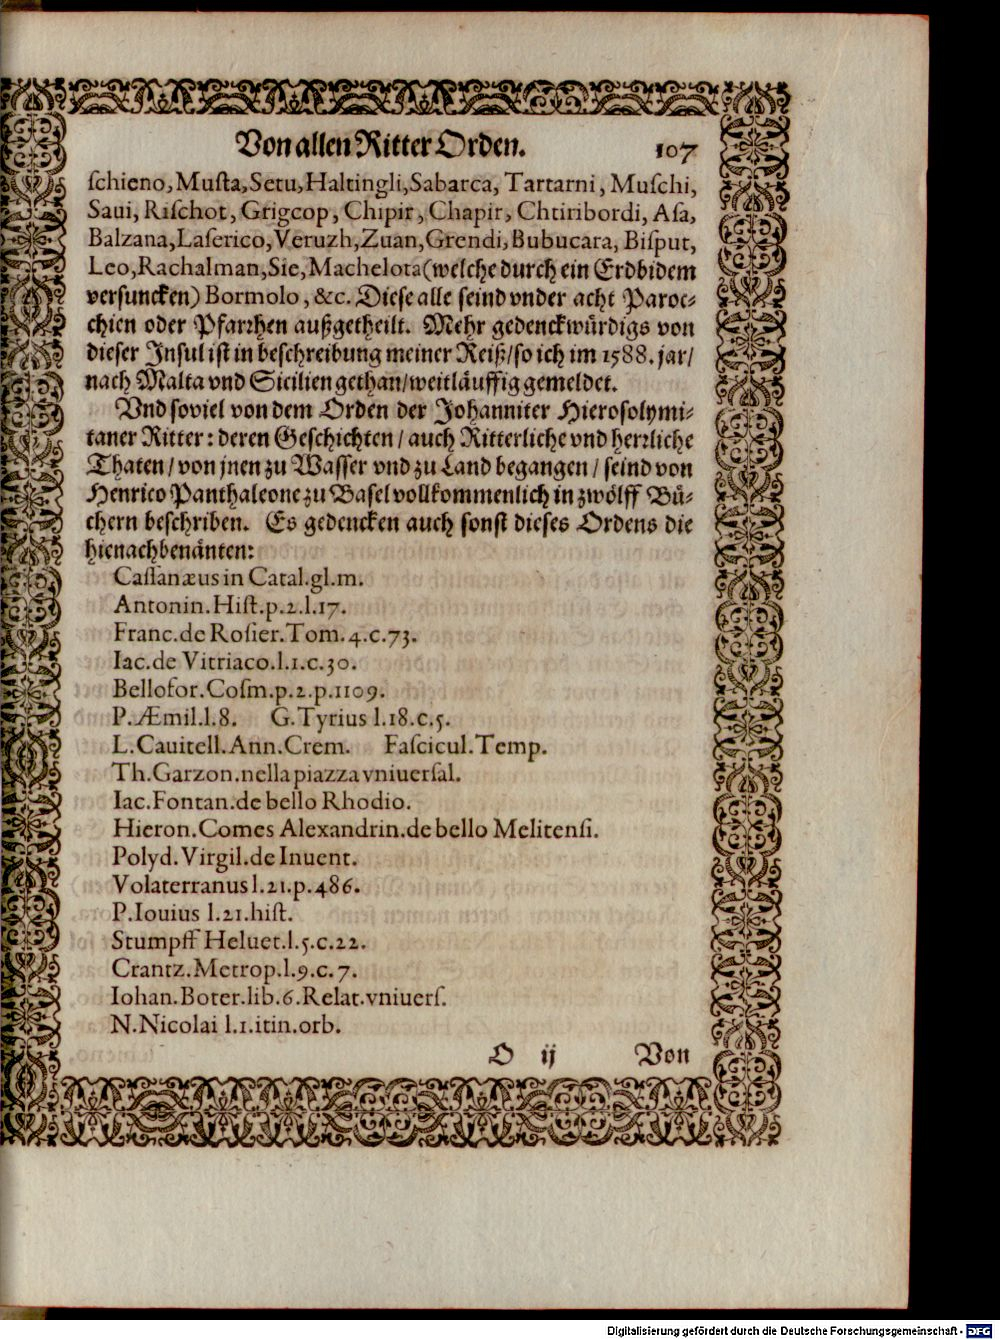 Von allen Ritter Orden. 107
ſchieno, Muſta, Setu, Haltingli, Sabarca, Tartarni, Muſchi,
Saui, Riſchot, Grigcop, Chipir, Chapir, Chtiribordi, Aſa,
Balzana, Laſerico, Veruzh, Zuan, Grendi, Bubucara, Biſput,
Leo, Rachalman, Sie, Machelota (welche durch ein Erdbidem
verſuncken) Bormolo, &c. Dieſe alle ſeind vnder acht Paroc⸗
chien oder Pfarꝛhen außgetheilt. Mehr gedenckwürdigs von
dieſer Inſul iſt in beſchreibung meiner Reiß/ ſo ich im 1588. jar/
nach Malta vnd Sicilien gethan/ weitläuffig gemeldet.
Vnd ſoviel von dem Orden der Johanniter Hieroſolymi⸗
taner Ritter: deren Geſchichten/ auch Ritterliche vnd herꝛliche
Thaten/ von jnen zu Waſſer vnd zu Land begangen/ ſeind von
Henrico Panthaleone zu Baſel vollkommenlich in zwölff Bü⸗
chern beſchriben. Es gedencken auch ſonſt dieſes Ordens die
hienachbenänten:
Caſſanæus in Catal. gl. m.
Antonin. Hiſt. p. 2. l. 17.
Franc. de Roſier. Tom. 4. c. 73.
Iac. de Vitriaco. l. 1. c. 30.
Bellofor. Coſm. p. 2. p. 1109.
P. Æmil. l. 8. G. Tyrius l. 18. c. 5.
L. Cauitell. Ann. Crem. Faſcicul. Temp.
Th. Garzon. nella piazza vniuerſal.
Iac. Fontan. de bello Rhodio.
Hieron. Comes Alexandrin. de bello Melitenſi.
Polyd. Virgil. de Inuent.
Volaterranus l. 21. p. 486.
P. Iouius l. 21. hiſt.
Stumpff Heluet. l. 5. c. 22.
Crantz. Metrop. l. 9. c. 7.
Iohan. Boter. lib. 6. Relat. vniuerſ.
N. Nicolai l. 1. itin. orb.
O ij Von
Digitalisierung gefördert durch die Deutsche Forschungsgemeinschaft - DFG